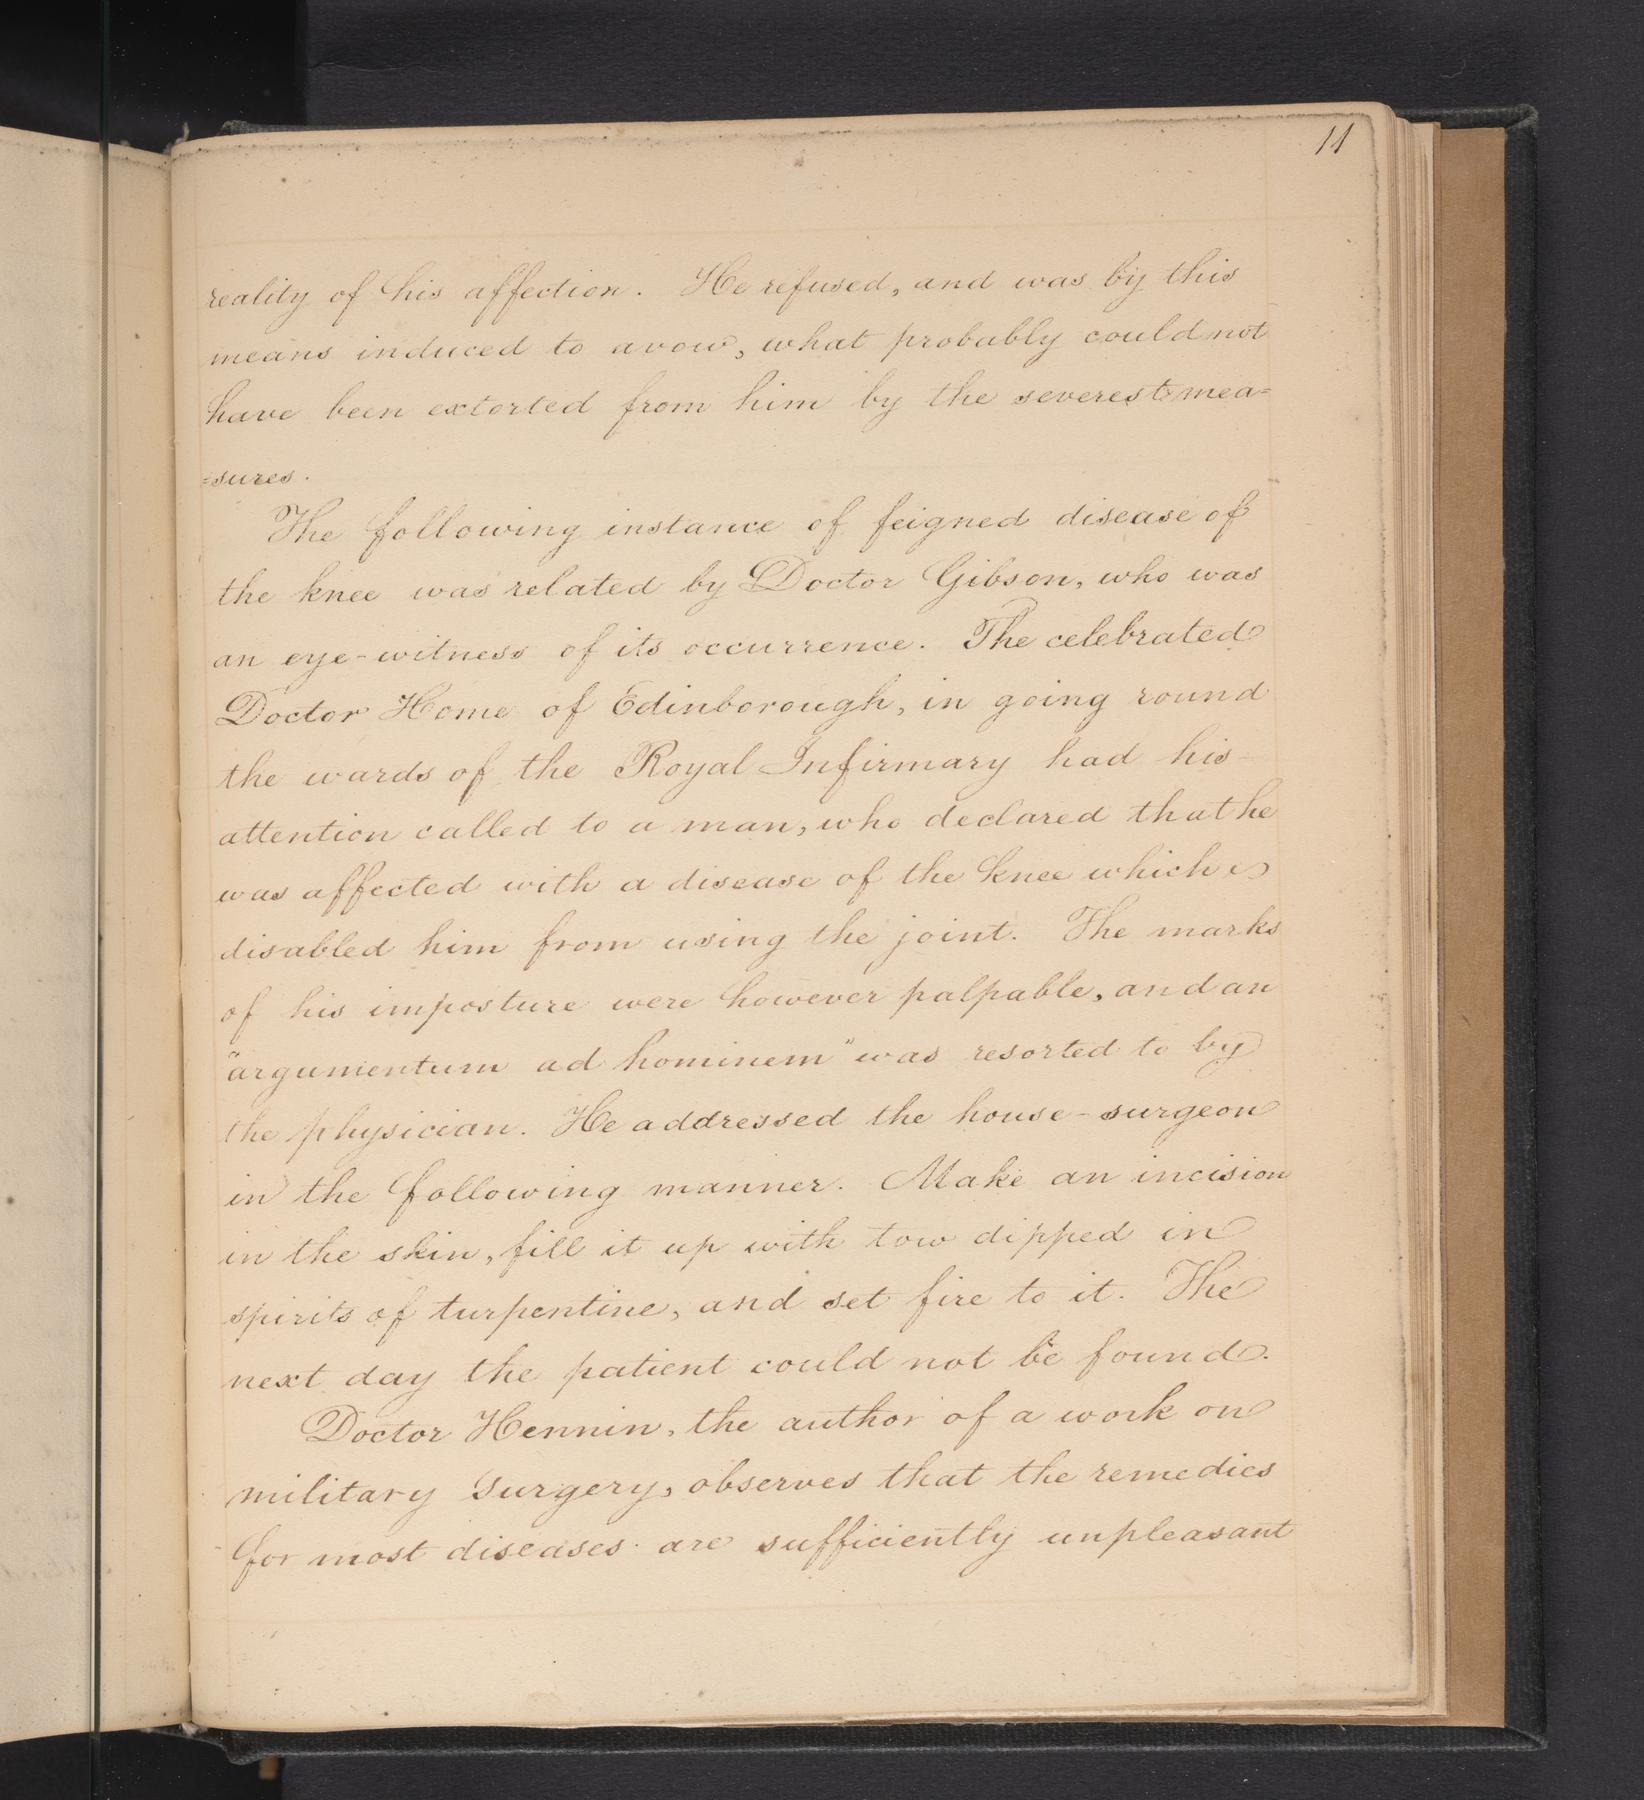 11
reality of his affection. He refused, and was by this
means induced to avow, what probably could not
have been extorted from him by the severest mea=
=sures.
The following instance of feigned disease of
the knee was related by Doctor Gibson, who was
an eye-witness of its occurrence. The celebrated
Doctor Home of Edinborough, in going round
the wards of the Royal Infirmary had his
attention called to a man, who declared that he
was affected with a disease of the knee which
disabled him from using the joint. The marks
of his imposture were however palpable, and an
"argumentum ad hominem" was resorted to by
the physician. He addressed the house-surgeon
in the following manner. Make an incision
in the skin, fill it up with tow dipped in
spirits of turpentine, and set fire to it. The
next day the patient could not be found.
Doctor Hennin, the author of a work on
military surgery, observes that the remedies
for most diseases are sufficiently unpleasant